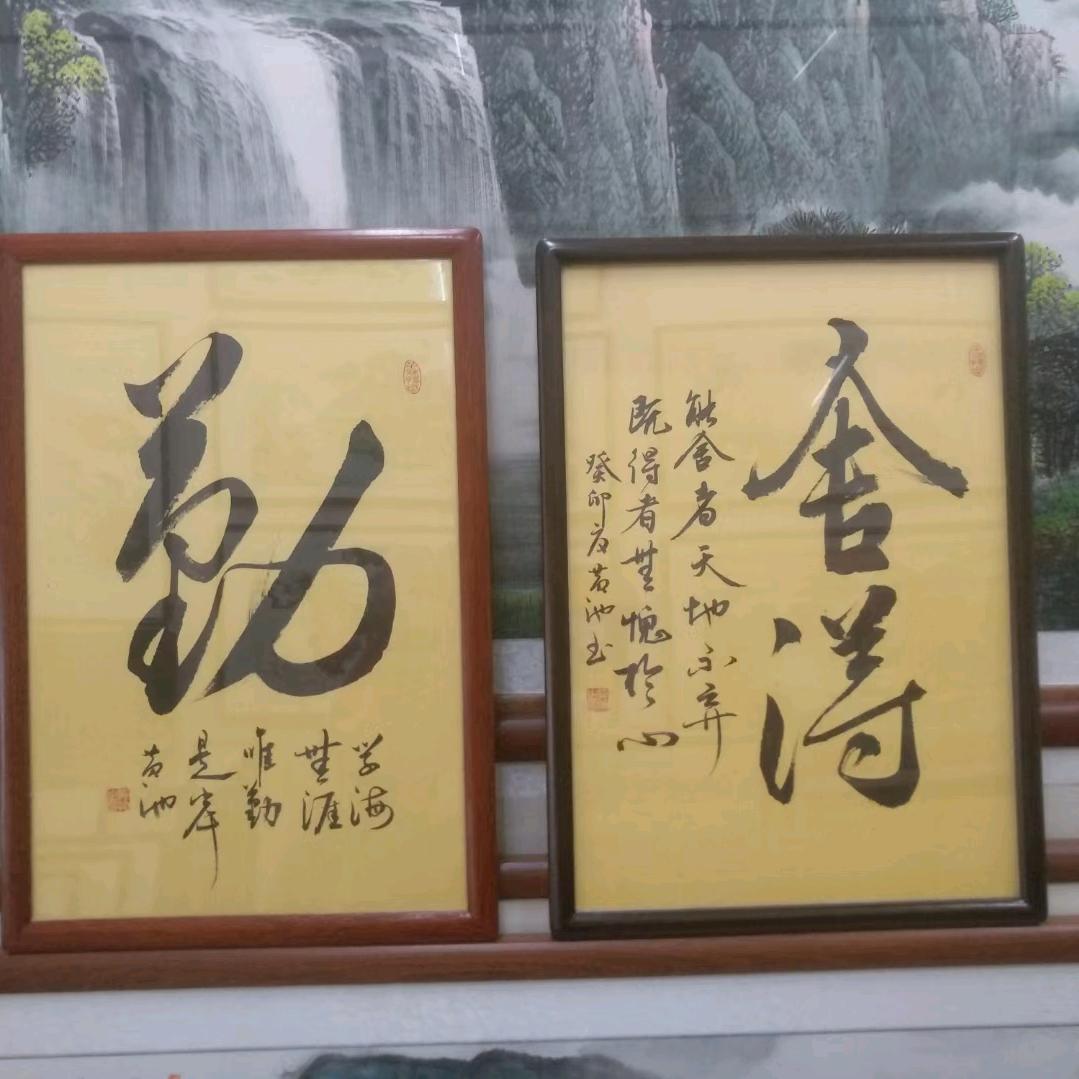 勤
学海
無涯
唯勤
是岸
黄池
舍得
能舍者天地不弃
既得者無愧於心
癸卯夏黄池书